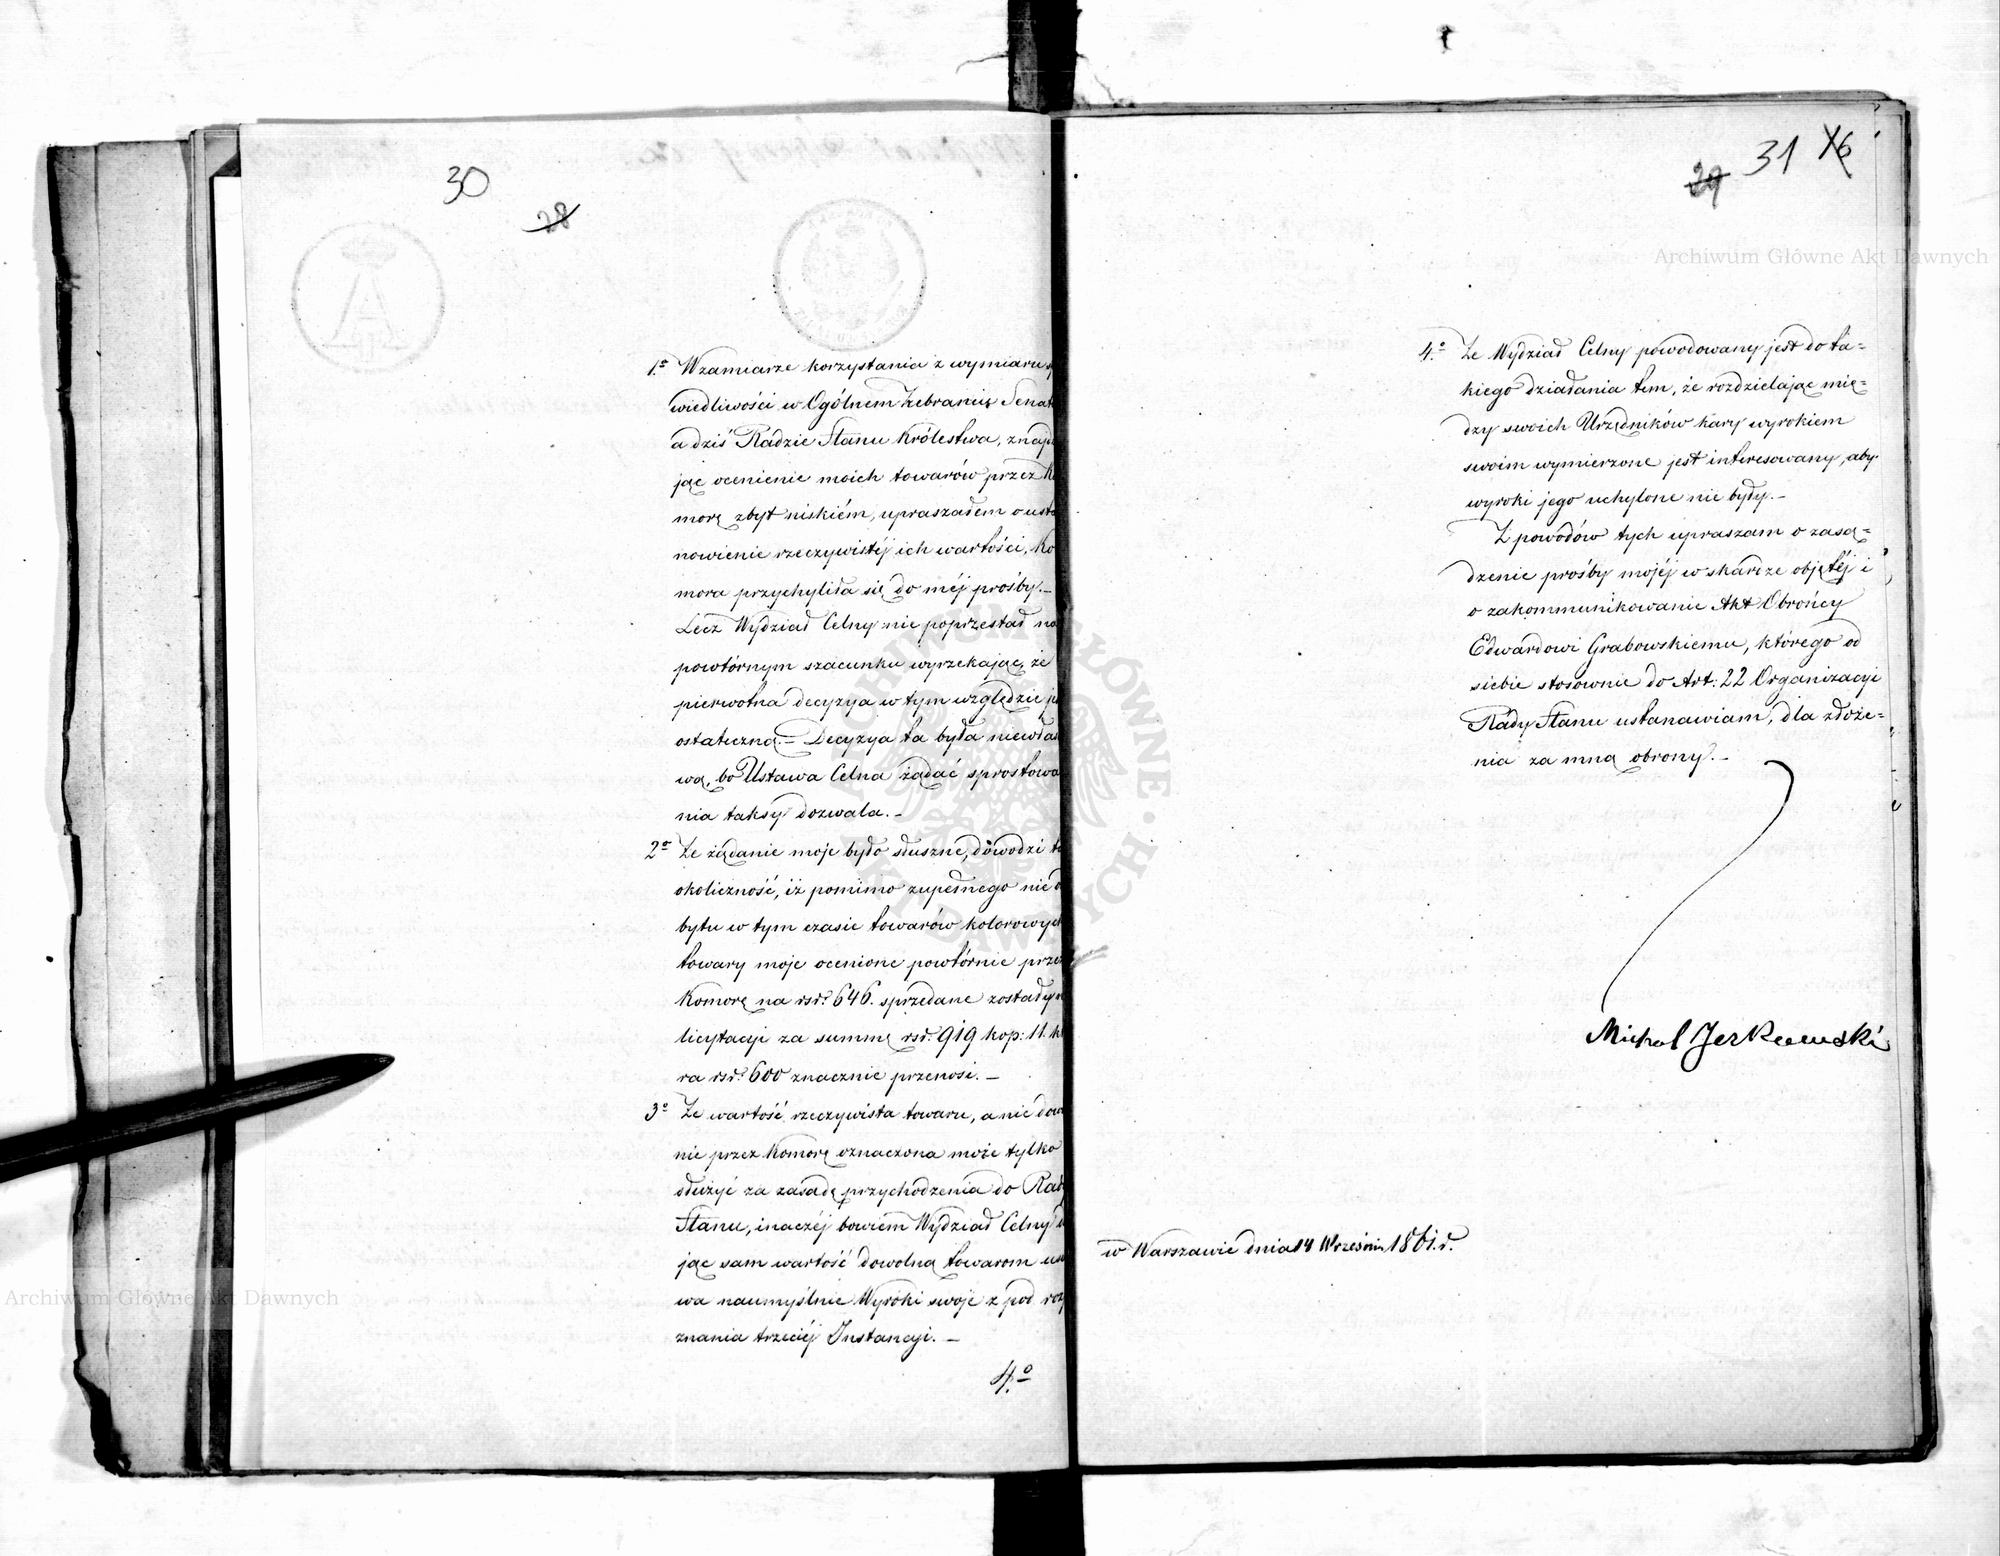 30
28
1o Wzamiarze korzystania z wymiaru
wiedliwości w Ogólnem Zebraniu Senat
a dziś Radzie Stanu Królestwa, znajd
jąc ocenienie moich towarów przez Ko
morę zbyt niskiém, upraszałem o usta
nowienie rzeczywistéj ich wartości, Ko
mora przychyliła się do méj prośby.—
Lecz Wydział Celny nie poprzestał na
powtórnym szacunku wyrzekając, że
pierwotna decyzya w tym względzie je
ostateczną.— Decyzya ta była niewłaś
wą, bo Ustawa Celna żądać sprostowa
nia taksy dozwala.—
2o Że żądanie moje było słuszne, dowodzi ta
okoliczność, iż pomimo zupełnego nie o
bytu w tym czasie towarów kolorowych
towary moje ocenione powtórnie przez
Komorę na rsr. 646. sprzedane zostały n
licytacyi za summę rsr. 919 kop: 11. kt
ra rsr. 600 znacznie przenosi.—
3o Że wartość rzeczywista towaru, a nie dow
nie przez Komorę oznaczona może tylko
służyć za zasadę przychodzenia do Rad
Stanu, inaczéj bowiem Wydział Celny
jąc sam wartość dowolną towarom usu
wa naumyślnie Wyroki swoje z pod roz
znania trzeciéj Instancyi.—
4o
29 31
4o Że Wydział Celny powodowany jest do ta=
kiego działania tem, że rozdzielając mię=
dzy swoich Urzędników kary wyrokiem
swoim wymierzone jest interesowany, aby
wyroki jego uchylone nie były.—
Z powodów tych upraszam o zasą=
dzenie prośby mojéj w skardze objętéj i
o zakommunikowanie Akt Obrońcy
Edwardowi Grabowskiemu, którego od
siebie stosownie do Art: 22 Organizacyi
Rady Stanu ustanawiam, dla złoże=
nia za mną obrony.—
Michal
w Warszawie dnia 14 Wrześnir 1861.r.
Archiwum Główne Akt Dawnych
Archiwum Główne Akt Dawnych
ARCHIWUM GŁÓWNE AKT DAWNYCH